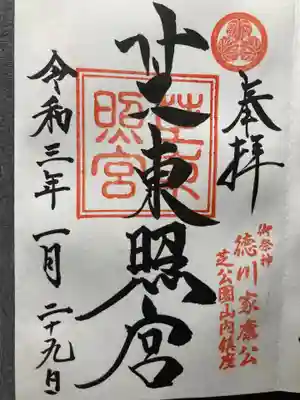 奉拝
御祭神
徳川家康公
芝公園山内鎮座
芝東照宮
芝東
照宮
令和三年一月二十九日